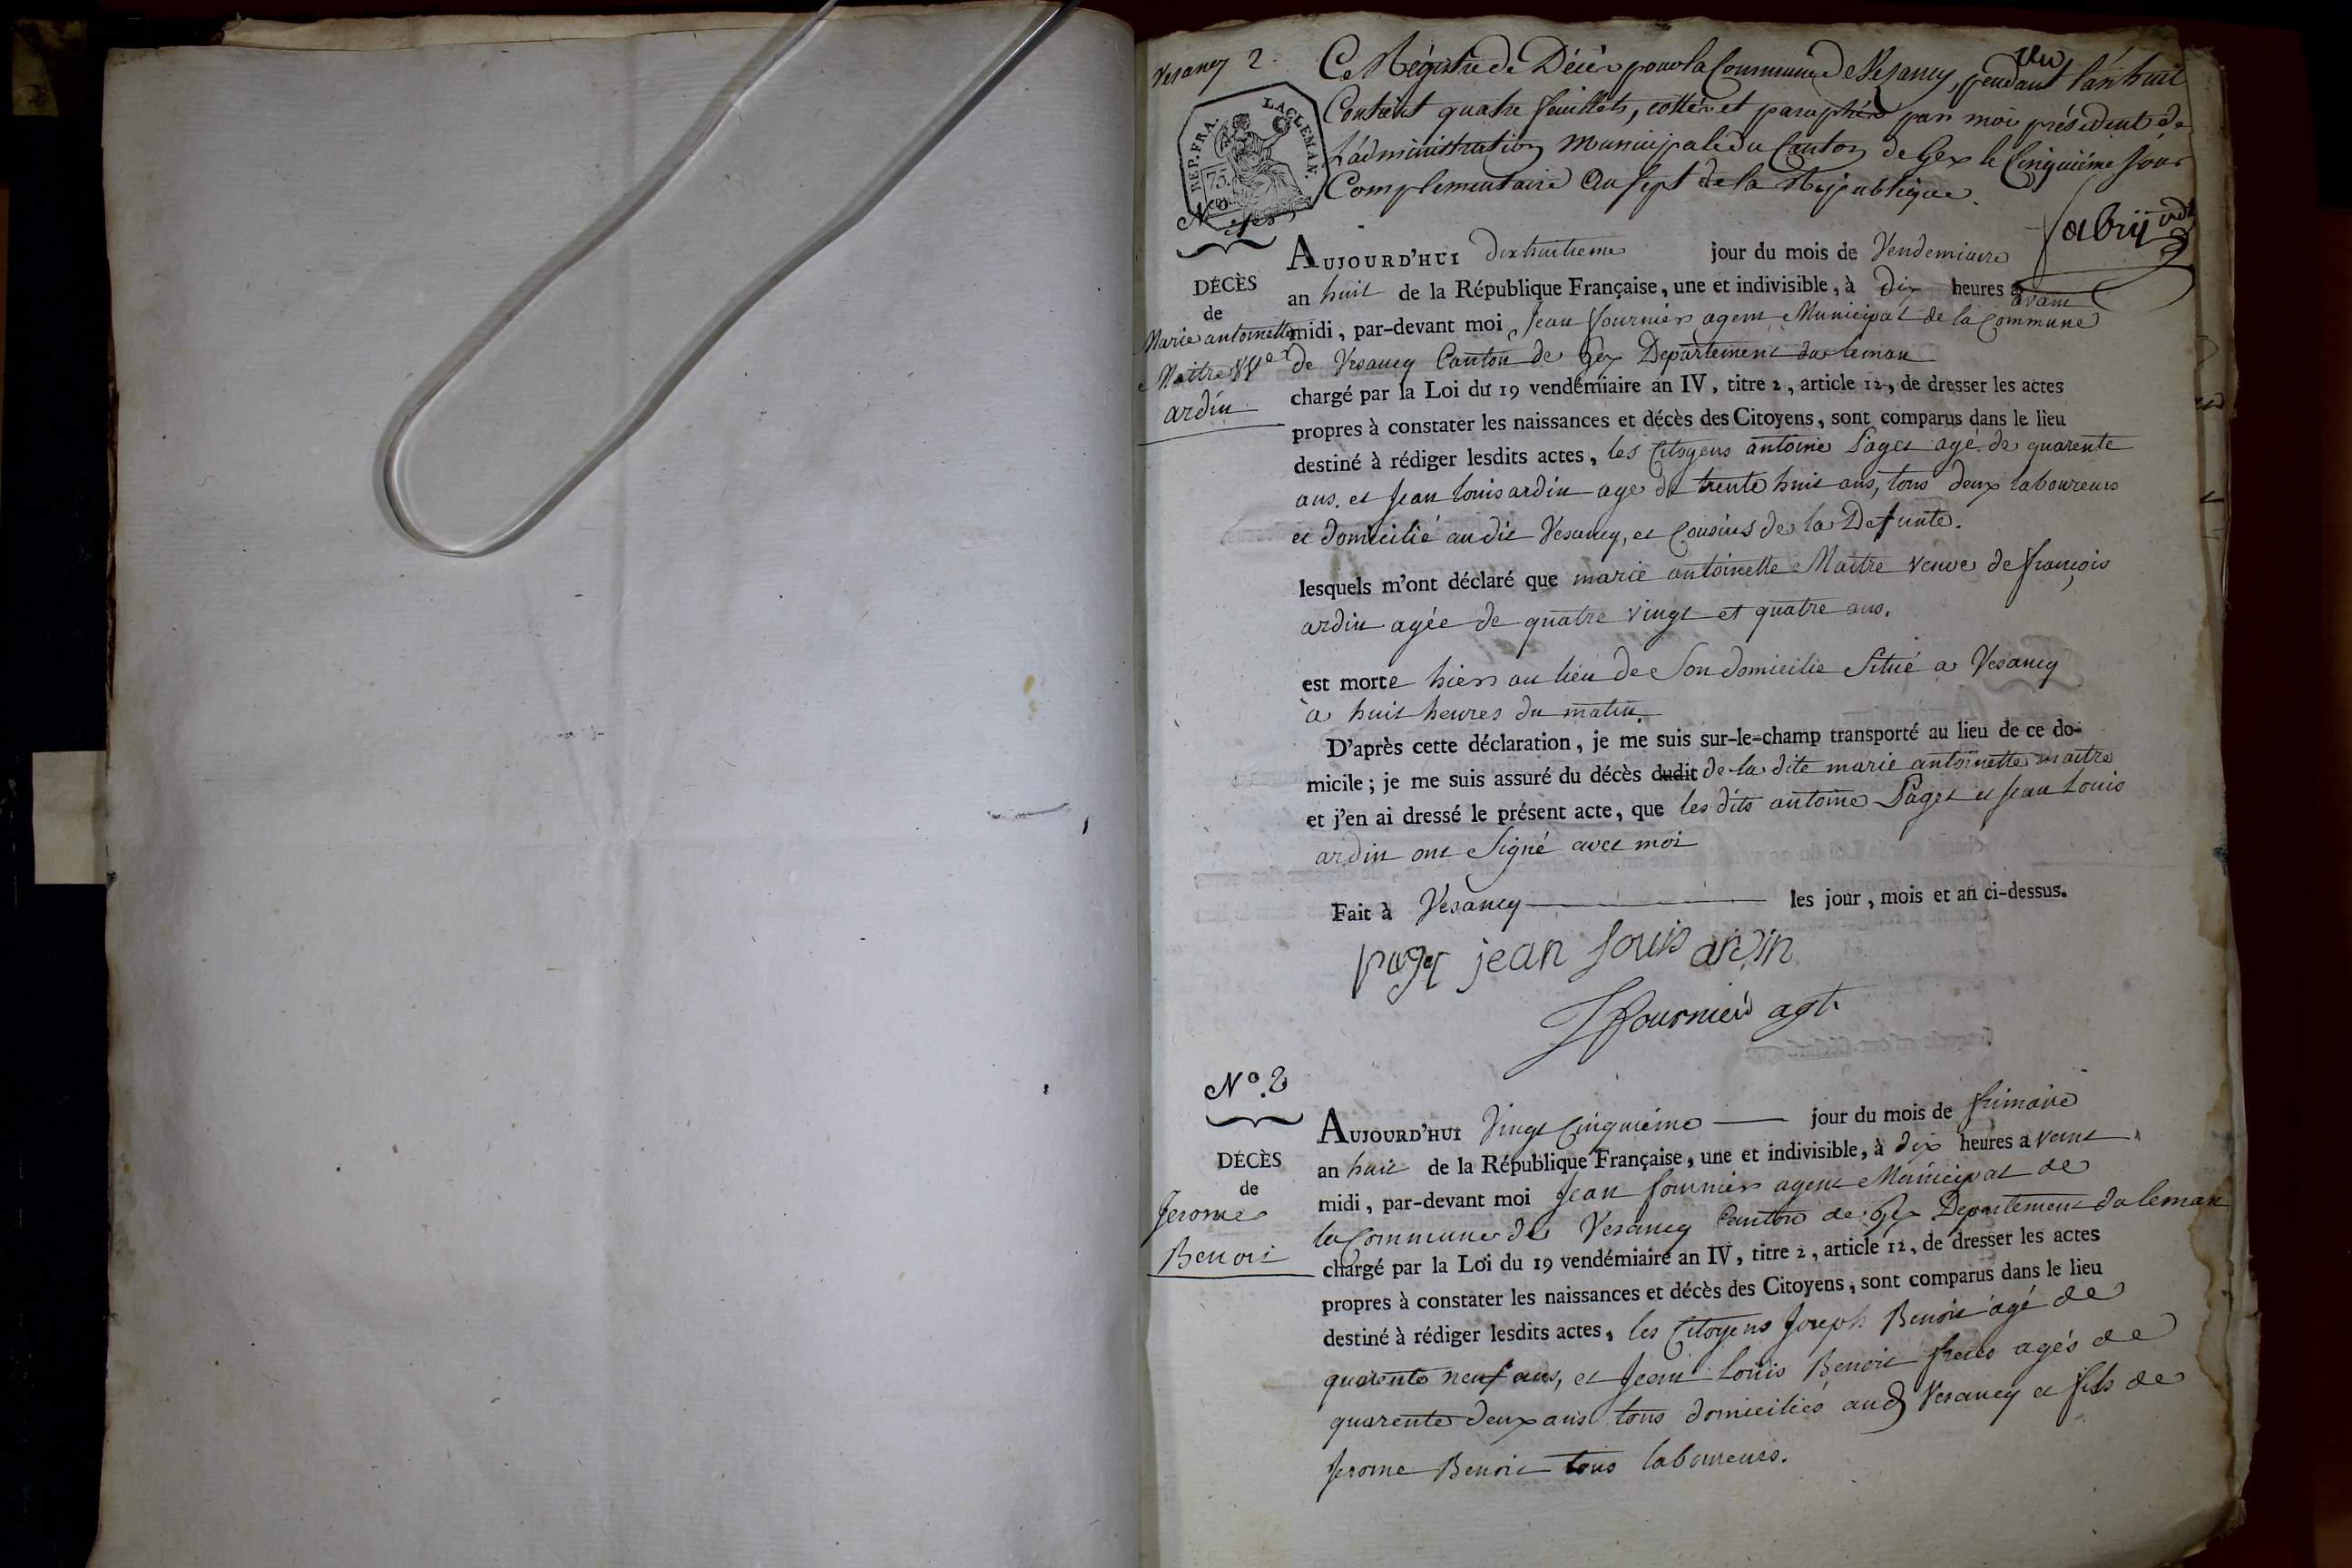 Vesancy 2.
Ce Régistre de Décès pour la Commune de Vesancy, pendant l'an huit
Contient quatre feuillets, cottés et paraphés par moi président de
L'administration Municipale du Canton de Gex le Cinquiéme Jour
Complementaire an sept de la République.
REP. FRA.
LACLEMAN.
75.
fabry
AUJOURD'HUI dixhuitieme jour du mois de Vendemiaire
DÉCÈS
de
Marie antoinette
Maitre Vve
ardin
an huit de la République Française, une et indivisible, à dix heures avant
midi, par-devant moi Jean fournier agent Municipal de la Commune
de Vesancy Canton de Gex Departement du leman
chargé par la Loi du 19 vendémiaire an IV, titre 2, article 12, de dresser les actes
propres à constater les naissances et décès des Citoyens, sont comparus dans le lieu
destiné à rédiger lesdits actes, les Citoyens antoine Paget agé de quarente
ans. et Jean louis ardin age de trente huit ans, tous deux laboureurs
et domicilié audit Vesancy, et Cousins de la Defunte.
lesquels m'ont déclaré que marie antoinette Maitre veuve de françois
ardin agée de quatre vingt et quatre ans.
est morte hier au lieu de Son domicilie Situé a Vesancy
à huit heures du matin.
D'après cette déclaration, je me suis sur-le-champ transporté au lieu de ce do-
micile; je me suis assuré du décès dudit de la dite marie antoinette maitre
et j'en ai dressé le présent acte, que les dits antoine Paget et Jean Louis
ardin ont Signé avec moi
Fait à Vesancy les jour, mois et an ci-dessus.
paget jean louis ardin
J fournier agt.
N°. 2
AUJOURD'HUI Vingt Cinquieme jour du mois de frimaire
DÉCÈS
de
Jerome
Benoit
an huit de la République Française, une et indivisible, à dix heures avant
midi, par-devant moi Jean fournier agent Municipal de
la Commune de Vesancy Canton de Gex Departement du leman
chargé par la Loi du 19 vendémiaire an IV, titre 2, article 12, de dresser les actes
propres à constater les naissances et décès des Citoyens, sont comparus dans le lieu
destiné à rédiger lesdits actes, les Citoyens Joseph Benoit agé de
quarente neuf ans, et Jean Louis Benoit freres agés de
quarente deux ans tous domiciliés aud Vesancy et fils de
Jerome Benoit tous laboureurs.